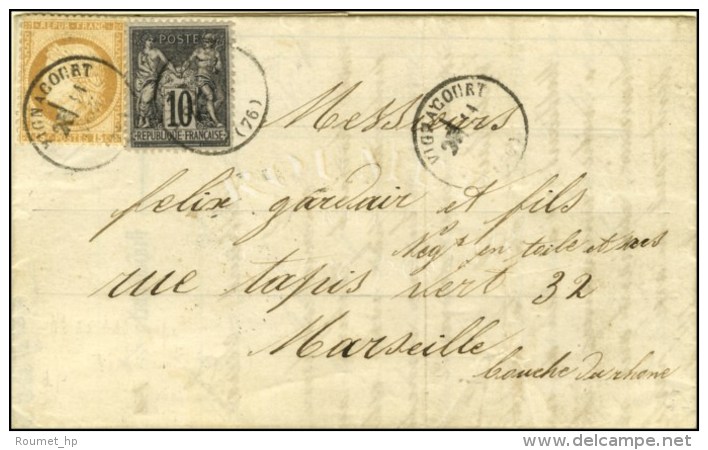 REPUB. FRANC.
POSTE
10
REPUBLIQUE FRANÇAISE
VIGNACOURT
(76)
VIGNACOURT
Messieurs
felix gardair et fils
Negt en toile et sacs
rue tapis vert 32
Marseille
bouche du rhone
Roumet_hp
delcampe.net